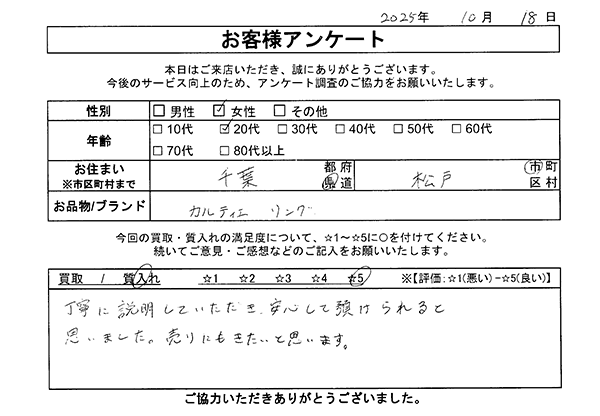 2025年 10月 18日
お客様アンケート
本日はご来店いただき、誠にありがとうございます。
今後のサービス向上のため、アンケート調査のご協力をお願いいたします。
性別 □ 男性 ☑ 女性 □ その他
年齢 □ 10代 ☑ 20代 □ 30代 □ 40代 □ 50代 □ 60代
□ 70代 □ 80代以上
お住まい ※市区町村まで 千葉 都府県道 松戸 市町区村
お品物/ブランド カルティエ リング
今回の買取・質入れの満足度について、☆1~☆5に○を付けてください。
続いてご意見・ご感想などのご記入をお願いいたします。
買取 / 質入れ ☆1 ☆2 ☆3 ☆4 ☆5 ※【評価:☆1(悪い)-☆5(良い)】
丁寧に説明していただき、安心して預けられると
思いました。売りにもきたいと思います。
ご協力いただきありがとうございました。